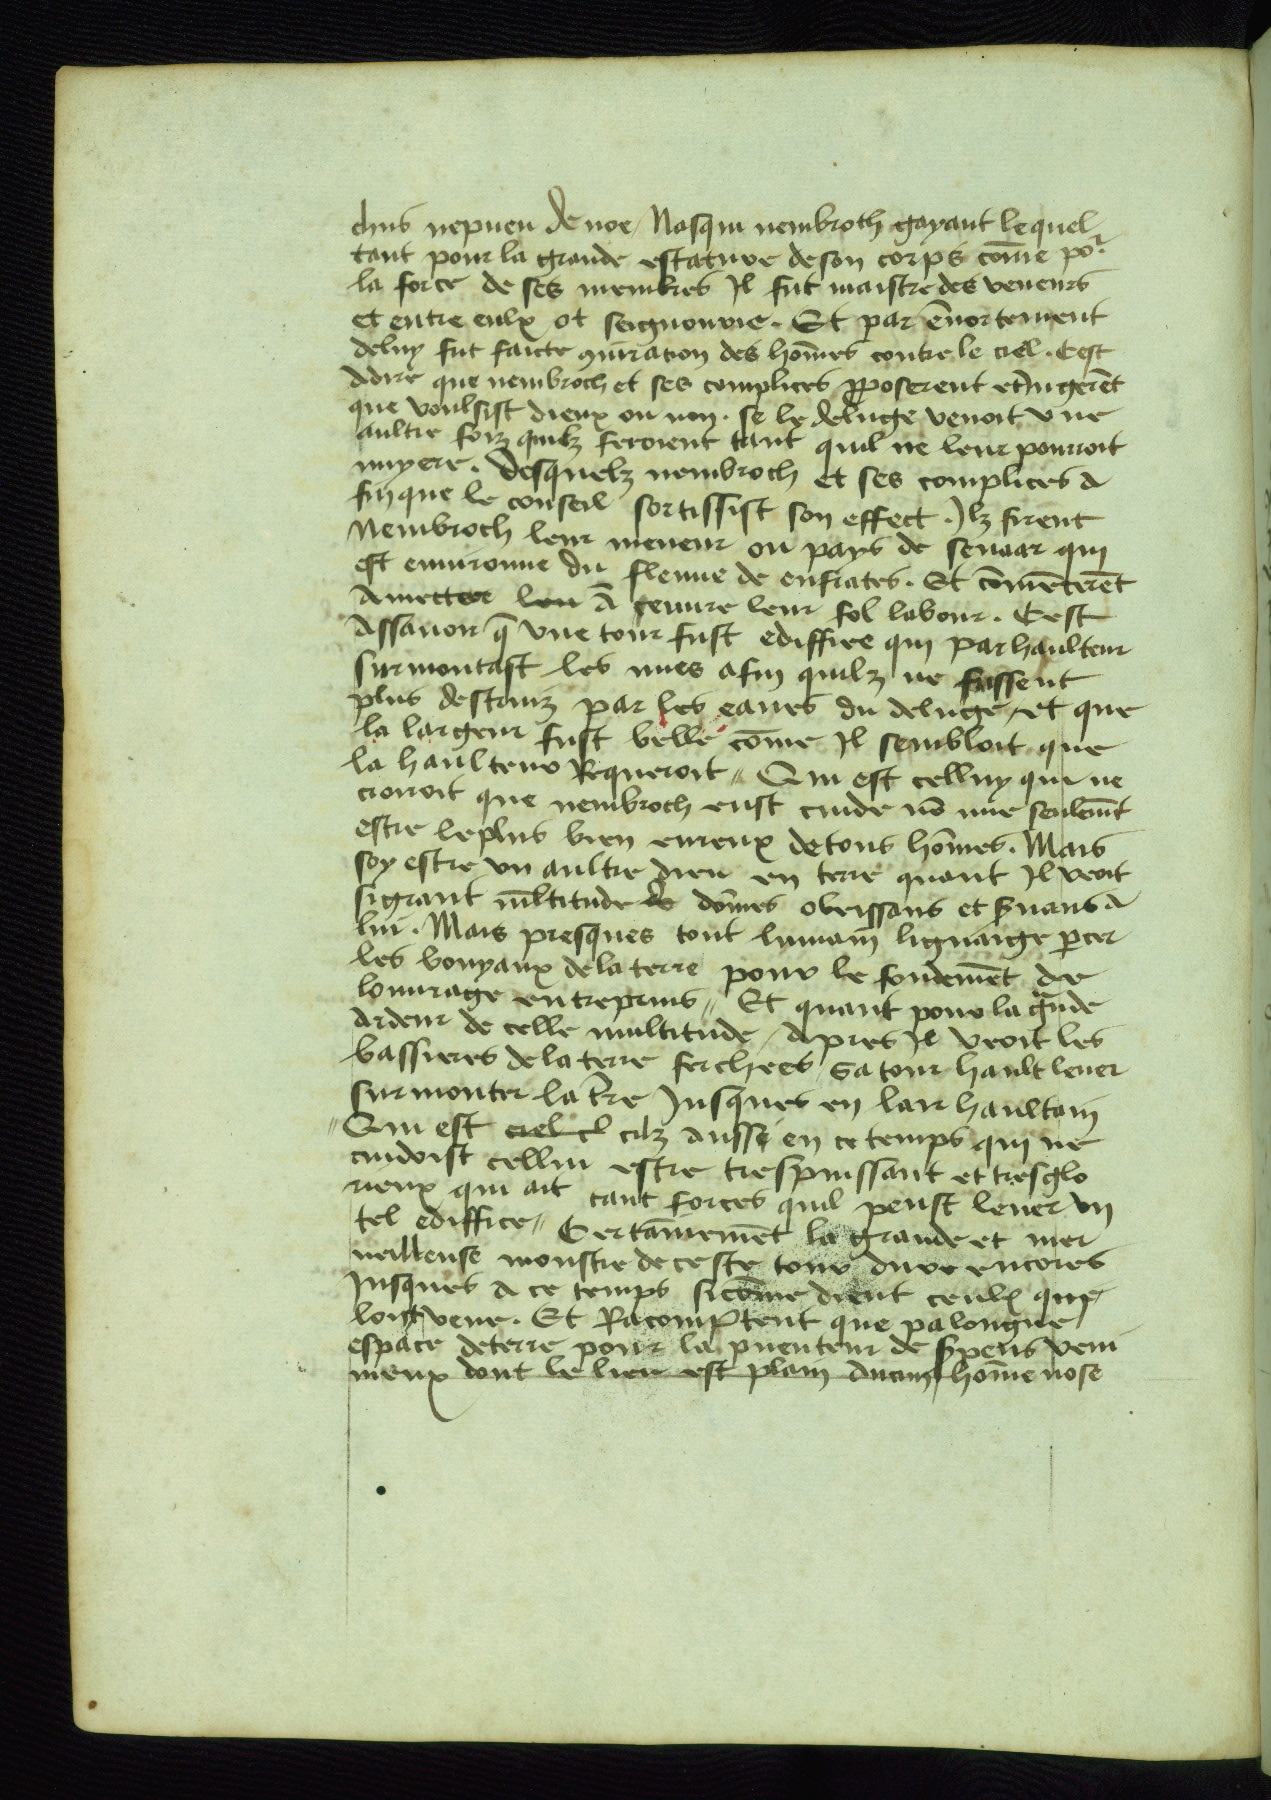 chus nepueu de noe / Nasqui nembroth gayant lequel
tant pour la grande estature de son corps cōme po͛
la force de ses membres Jl fut maistre des veneurs
et entre eulx ot seignourie . Et par ēnortement
deluy fut faicte ꝯiuration des hōmes contre le ciel . Cest
Adire que nembroch et ses complices ꝓposerent et Jugerēt
que voulsist dieux ou non . se le deluge venoit vne
aultre foiz quilz feroient tant quil ne leur pourroit
nuyere . Desquelz nembroch et ses complices a
fin que le conseil sortissist son effect . Jlz firent
Nembroch leur meneur ou pays de senaar qui
est enuironne du fleuue de eufrates . Et cōmēcerēt
Amettre leu A̅ oeuure leur fol labour . Cest
Assauoir q̄ vne tour fust ediffiee qui par haulteur
surmontast les nues afin quilz ne fussent
plus destruiz par les eaues du deluge / et que
la largeur fust belle cōme Jl sembloit que
la haulteur Requeroit // Qui est celluy qui ne
croiroit que nembroch eust cuide nō mie seulemt̄
estre le plus bien eureux de tous hōmes . Mais
soy estre vn aultre dieu en terre quant Jl veoit
si grant ml̄titude de dōmes obeissans et ẜuans A
lui . Mais presques tout lumain lignaige ꝑcer
les bouyaux de la terre pour le fondemēt de
louurage entreprins // Et quant pour la grāde
Ardeur de celle multitude / Apres Jl veoit les
bassieres de la terre serchees / sa tour hault leuer
surmonter la t̄re Jusques en lair haultain
// Qui est ciel cl cilz Aussi en ce temps qui ne
cuidoist cellui estre trespuissant et tresglo
rieux qui ait tant forces quil peust leuer vn
tel ediffice // Certainemēt la grande et mer
ueilleuse monstre de ceste tour dure encores
Jusques A ce temps si cōme dient ceulx que
lont veue . Et Racomptent que pa longue
espace de terre pour la pueuteur de ẜpens veni
meux dont le lieu est plain Aucun hōme nose